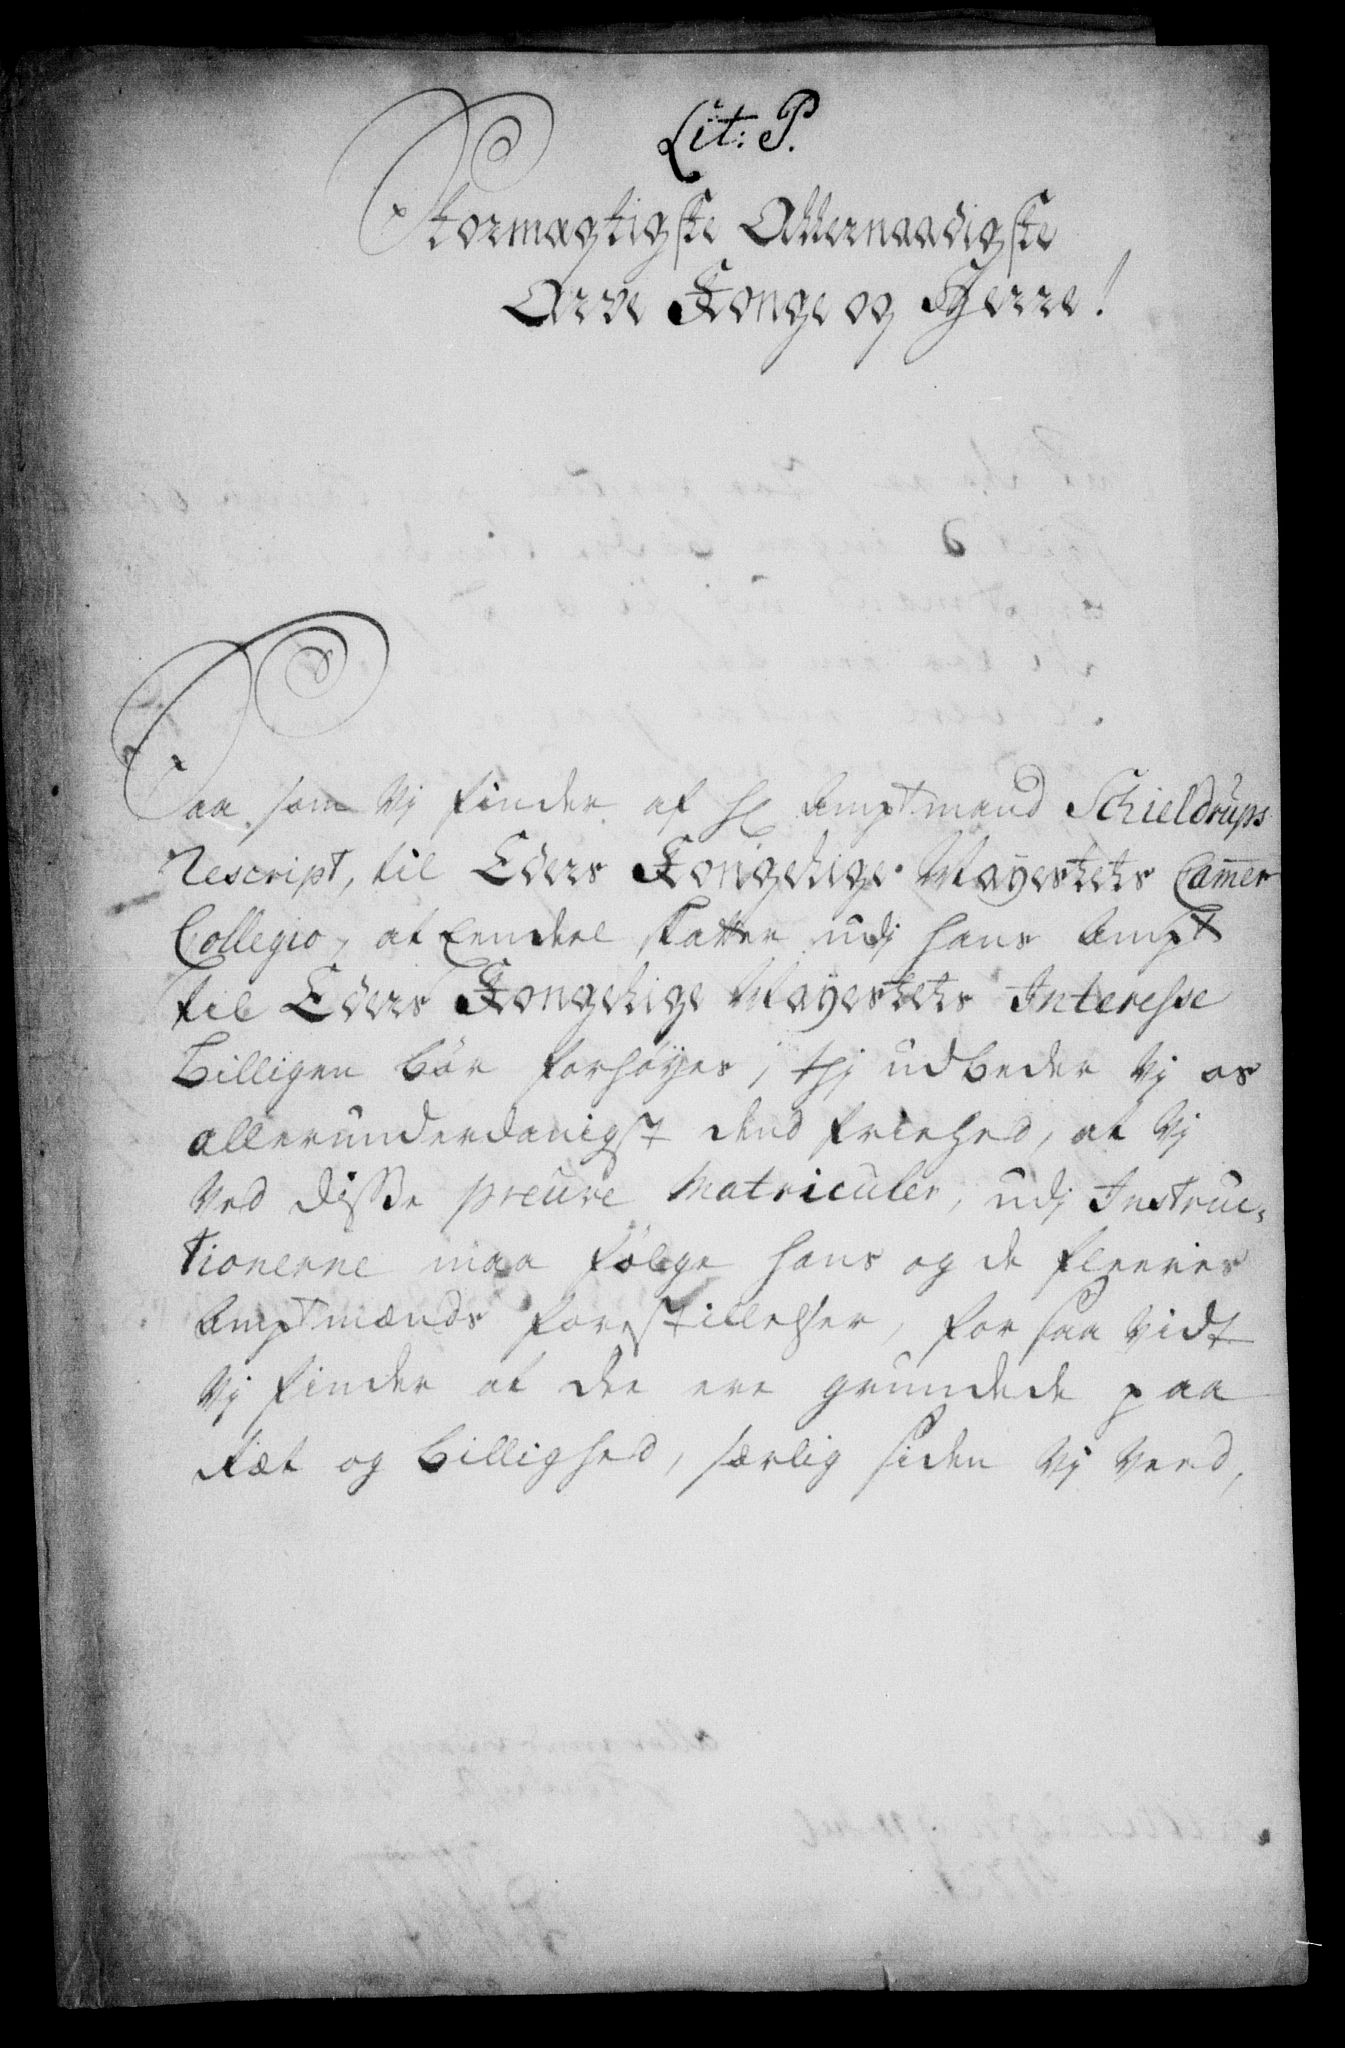 Lit: P.
Stormægtigste Allernaadigste
Arve Konge og Herre!
Saa som Vj finder af Hr Amptmand Schieldrups
Rescript, til Eders Kongelige Mayestets Camer
Collegio, at Eendeel skatter udj hans Ampt
til Eders Kongelige Mayestets Interesse
Billigen bør forhøyes, thj udbeder Vj os
allerunderdanigst dend friehed, at Vj
Ved disse preuve Matriculer, udj Instruc,
tionerne maa følge hans og de fleeres
Amptmænds forestillelser, for saa vidt
Vj finder at dee ere grundede paa
Ræt og Billighed, særlig siden Vj Veed,